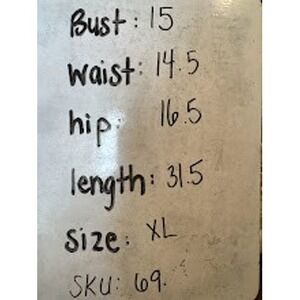 Bust: 15
waist: 14.5
hip: 16.5
length: 31.5
size: XL
SKU: 69.